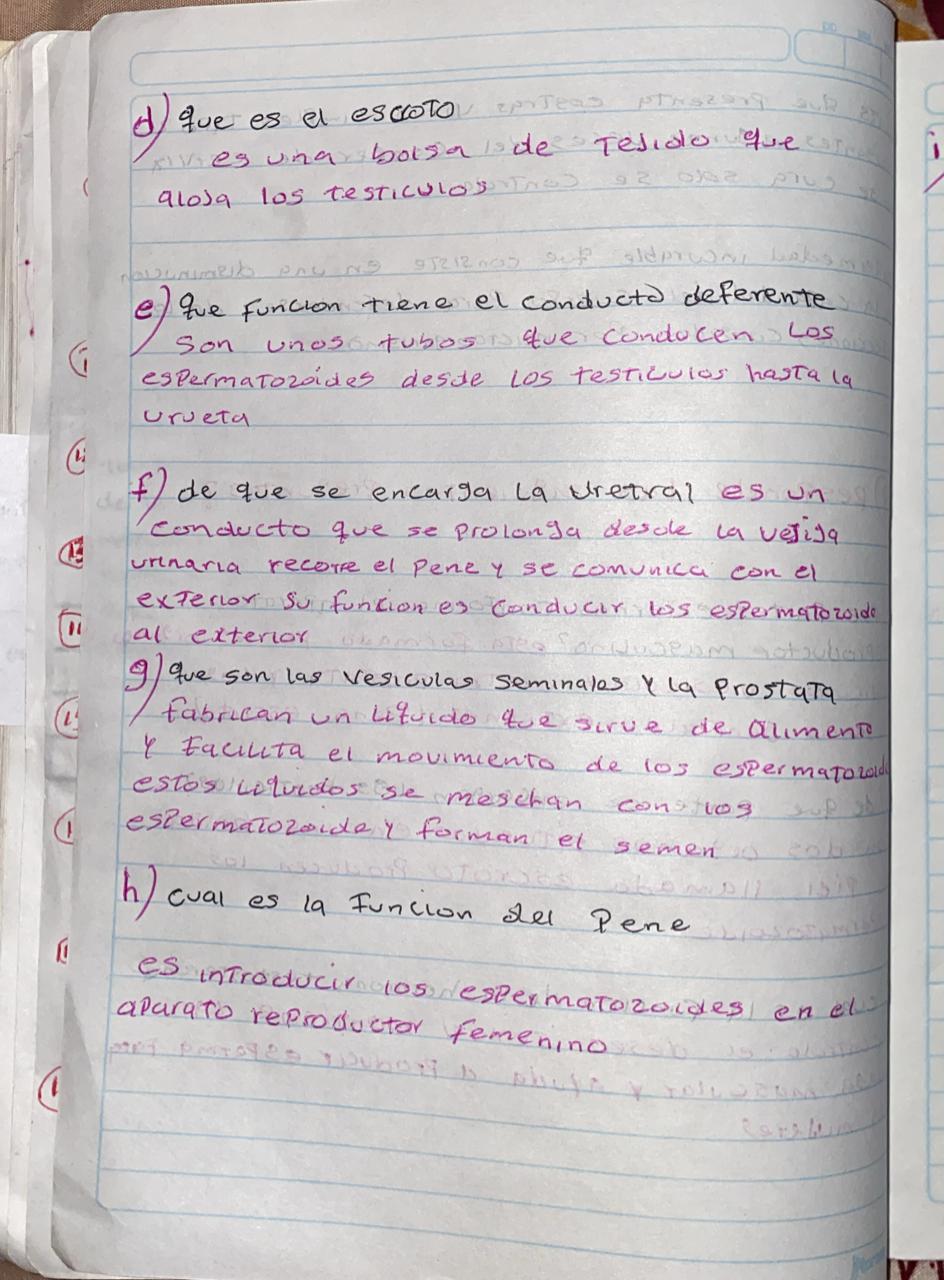 d) que es el escroto
es una bolsa de Tejido que
aloja los testiculos
e) que funcion tiene el conducto deferente
son unos tubos que conducen los
espermatozoides desde los testiculos hasta la
urueta
f) de que se encarga la uretral es un
conducto que se prolonga desde la vejiga
urinaria recorre el pene y se comunica con el
exterior su funcion es conducir los espermatozoide
al exterior
g) que son las vesiculas seminales y la prostata
fabrican un liquido que sirve de alimento
y facilita el movimiento de los espermatozoide
estos liquidos se meschan con los
espermatozoide y forman el semen
h) cual es la funcion del pene
es introducir los espermatozoides en el
aparato reproductor femenino